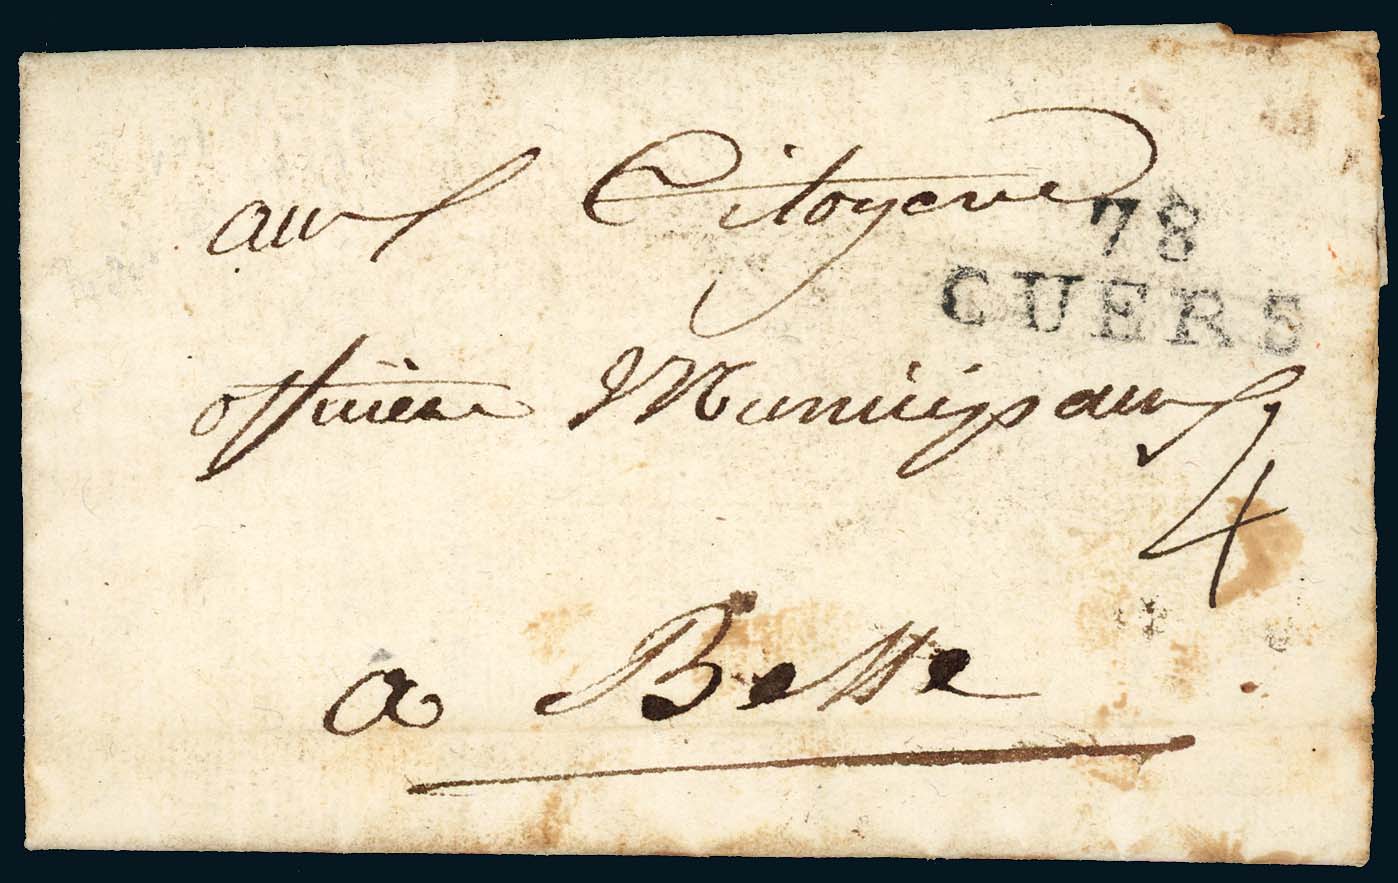 aux Citoyens
78
CUERS
officiers Municipaux
4
a Besse